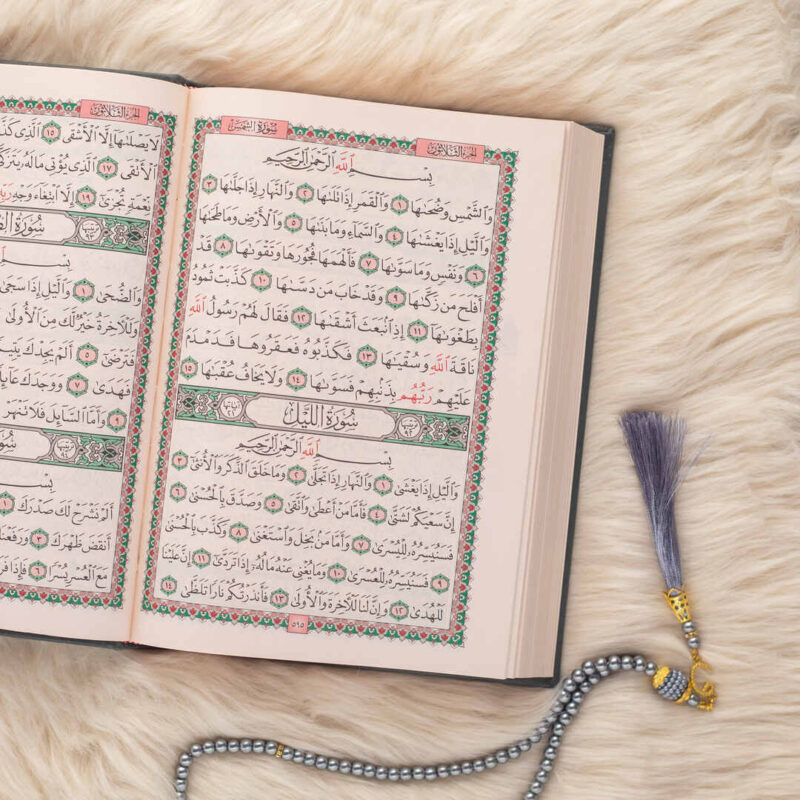 الجزء الثلاثون سُورَةُ الشَّمْسِ
بِسْمِ اللَّهِ الرَّحْمَٰنِ الرَّحِيمِ
وَالشَّمْسِ وَضُحَىٰهَا ١ وَالْقَمَرِ إِذَا تَلَىٰهَا ٢ وَالنَّهَارِ إِذَا جَلَّىٰهَا ٣
وَالَّيْلِ إِذَا يَغْشَىٰهَا ٤ وَالسَّمَاءِ وَمَا بَنَىٰهَا ٥ وَالْأَرْضِ وَمَا طَحَىٰهَا
٦ وَنَفْسٍ وَمَا سَوَّىٰهَا ٧ فَأَلْهَمَهَا فُجُورَهَا وَتَقْوَىٰهَا ٨ قَدْ
أَفْلَحَ مَن زَكَّىٰهَا ٩ وَقَدْ خَابَ مَن دَسَّىٰهَا ١٠ كَذَّبَتْ ثَمُودُ
بِطَغْوَىٰهَا ١١ إِذِ انبَعَثَ أَشْقَىٰهَا ١٢ فَقَالَ لَهُمْ رَسُولُ اللَّهِ
نَاقَةَ اللَّهِ وَسُقْيَٰهَا ١٣ فَكَذَّبُوهُ فَعَقَرُوهَا فَدَمْدَمَ
عَلَيْهِمْ رَبُّهُم بِذَنبِهِمْ فَسَوَّىٰهَا ١٤ وَلَا يَخَافُ عُقْبَٰهَا ١٥
سُورَةُ اللَّيْلِ
بِسْمِ اللَّهِ الرَّحْمَٰنِ الرَّحِيمِ
وَالَّيْلِ إِذَا يَغْشَىٰ ١ وَالنَّهَارِ إِذَا تَجَلَّىٰ ٢ وَمَا خَلَقَ الذَّكَرَ وَالْأُنثَىٰ ٣
إِنَّ سَعْيَكُمْ لَشَتَّىٰ ٤ فَأَمَّا مَنْ أَعْطَىٰ وَاتَّقَىٰ ٥ وَصَدَّقَ بِالْحُسْنَىٰ ٦
فَسَنُيَسِّرُهُ لِلْيُسْرَىٰ ٧ وَأَمَّا مَن بَخِلَ وَاسْتَغْنَىٰ ٨ وَكَذَّبَ بِالْحُسْنَىٰ
٩ فَسَنُيَسِّرُهُ لِلْعُسْرَىٰ ١٠ وَمَا يُغْنِي عَنْهُ مَالُهُ إِذَا تَرَدَّىٰ ١١ إِنَّ عَلَيْنَا
لَلْهُدَىٰ ١٢ وَإِنَّ لَنَا لَلْآخِرَةَ وَالْأُولَىٰ ١٣ فَأَنذَرْتُكُمْ نَارًا تَلَظَّىٰ ١٤
٥٩٥
الجزء الثلاثون
لَا يَصْلَىٰهَا إِلَّا الْأَشْقَى ١٥ الَّذِي
الْأَتْقَى ١٧ الَّذِي يُؤْتِي مَالَهُ
نِّعْمَةٍ تُجْزَىٰ ١٩ إِلَّا ابْتِغَاءَ وَجْهِ
سُورَةُ
بِسْمِ
وَالضُّحَىٰ ١ وَالَّيْلِ إِذَا سَجَىٰ
وَلَلْآخِرَةُ خَيْرٌ لَّكَ مِنَ الْأُولَىٰ
فَتَرْضَىٰ ٥ أَلَمْ يَجِدْكَ
فَهَدَىٰ ٧ وَوَجَدَكَ
٩ وَأَمَّا السَّائِلَ فَلَا تَنْهَرْ
بِسْمِ
أَلَمْ نَشْرَحْ لَكَ صَدْرَكَ ١
أَنقَضَ ظَهْرَكَ ٣
مَعَ الْعُسْرِ يُسْرًا ٦ فَإِذَا